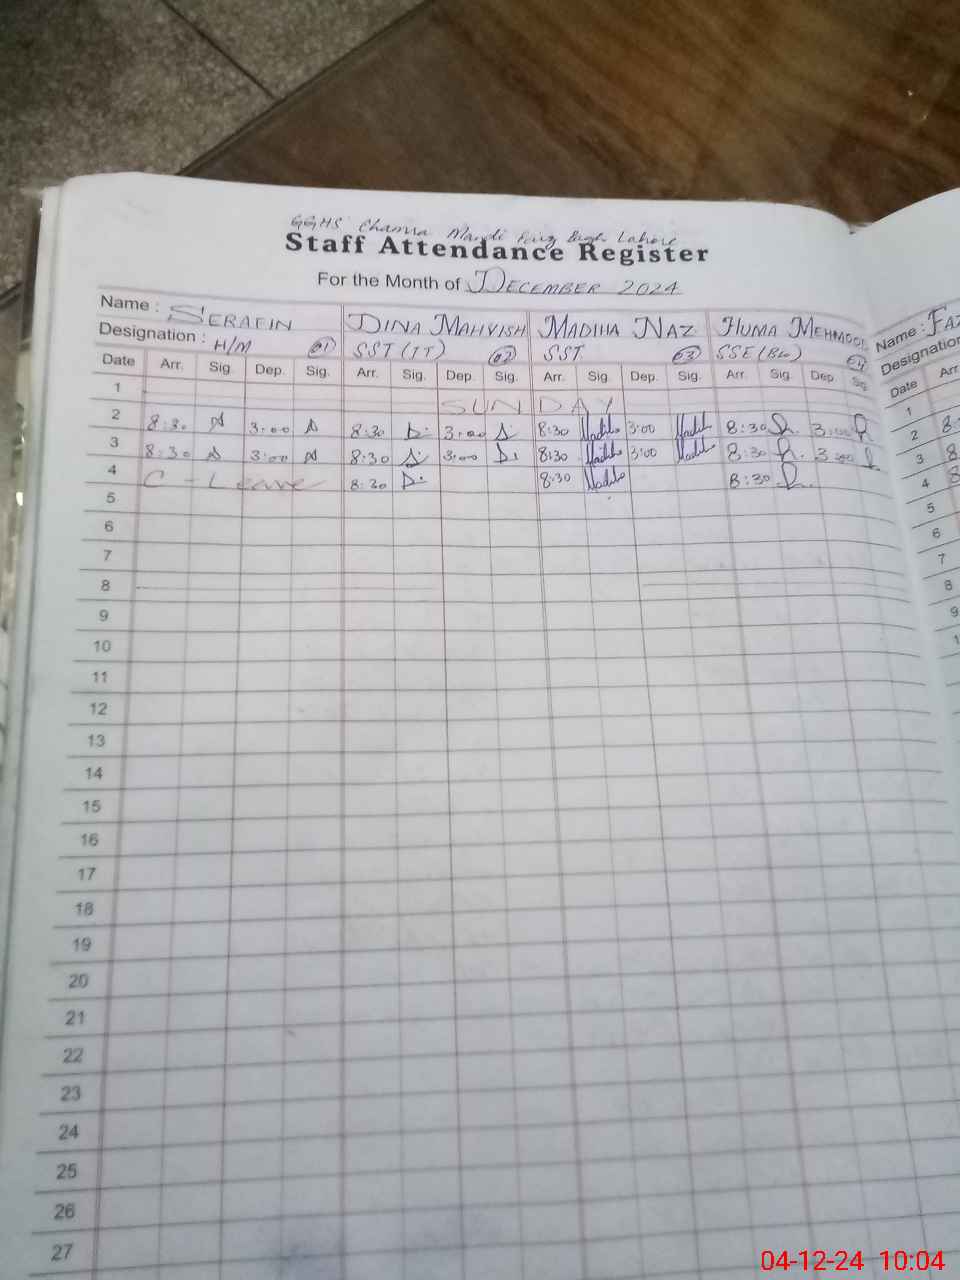 GGHS Chamra Mandi Lahore
Staff Attendance Register
For the Month of DECEMBER 2024
Name : SERAFIN DINA MAHVISH MADIHA NAZ HUMA MEHMOOD Name : FAZ
Designation : H/M 01 SST (IT) 02 SST 03 SSE (Bio) 04 Designation
Date Arr. Sig. Dep. Sig. Arr. Sig. Dep. Sig. Arr. Sig. Dep. Sig. Arr. Sig. Dep. Sig. Date Arr
1 SUNDAY 1
2 8:30 3:00 8:30 3:00 8:30 Madiha 3:00 Madiha 8:30 3:00 2 8:
3 8:30 3:00 8:30 3:00 8:30 Madiha 3:00 Madiha 8:30 3:00 3 8
4 C - Leave 8:30 8:30 Madiha 8:30 4 8
5 5
6 6
7 7
8 8
9 9
10 1
11
12
13
14
15
16
17
18
19
20
21
22
23
24
25
26
27
04-12-24 10:04